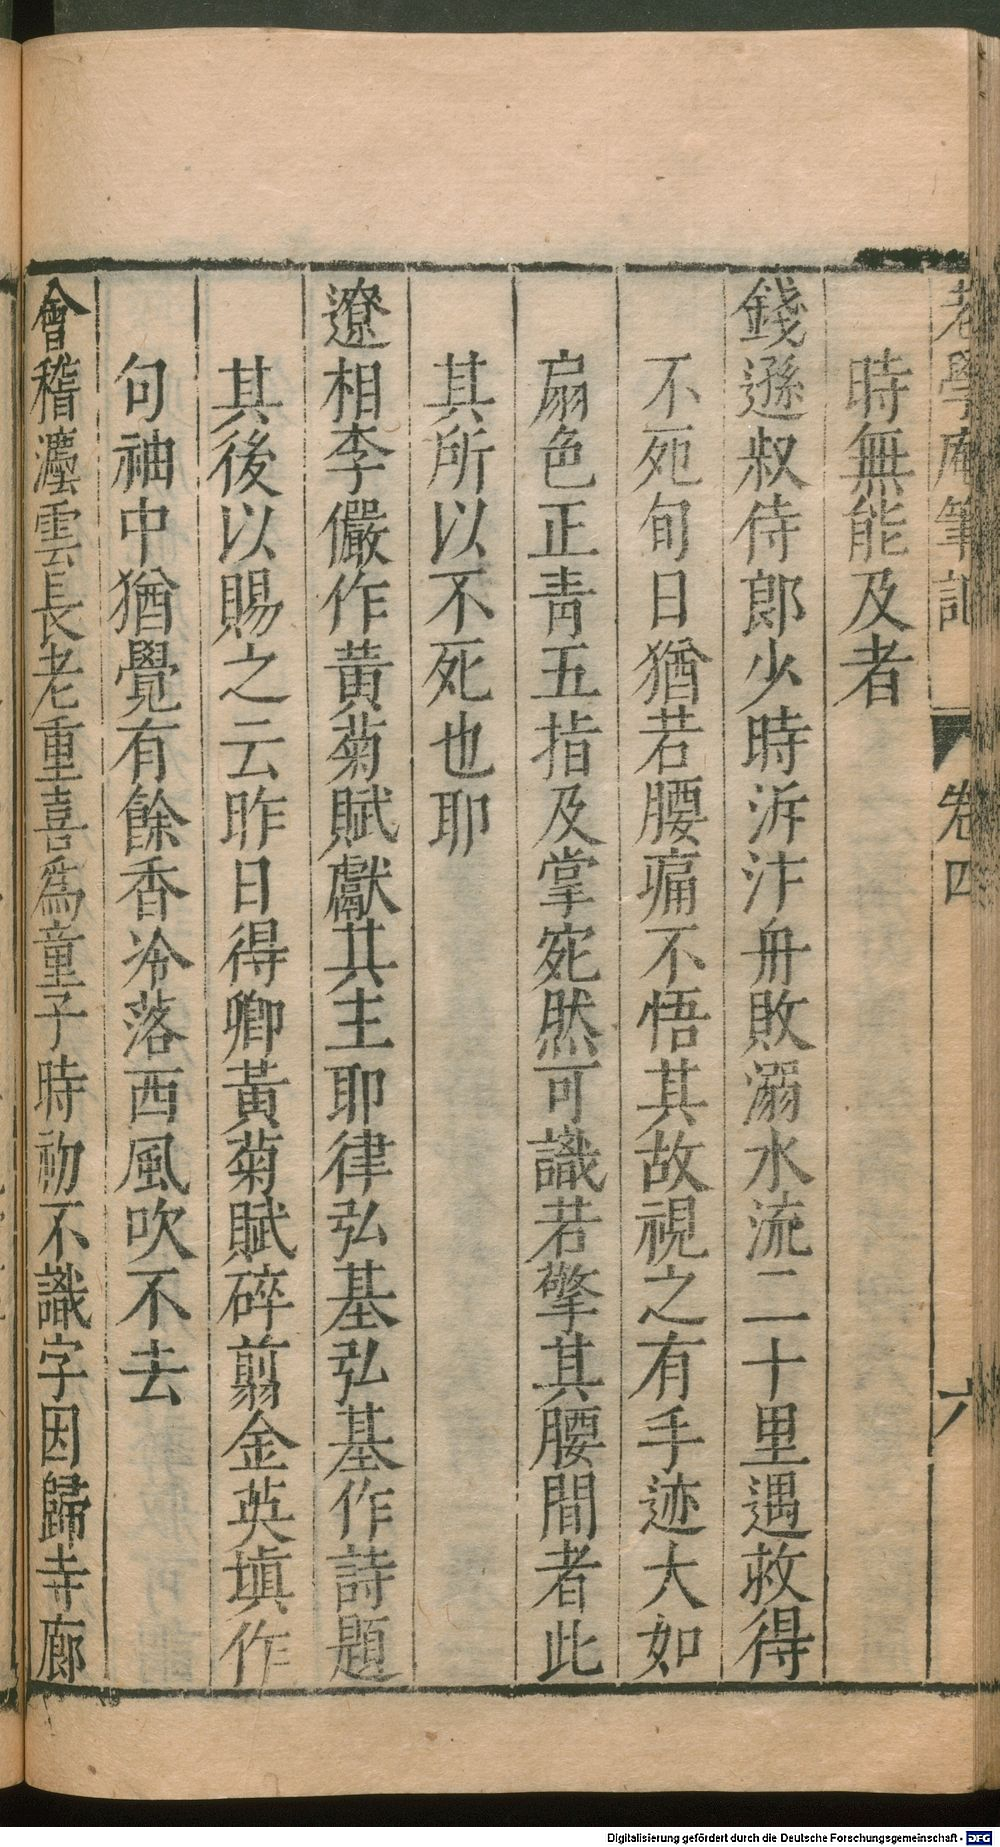 老學庵筆記 卷四 六
時無能及者
錢遜叔侍郎少時泝汴舟敗溺水流二十里遇救得
不死旬日猶若腰痛不悟其故視之有手迹大如
扇色正靑五指及掌宛然可識若擎其腰間者此
其所以不死也耶
遼相李儼作黃菊賦獻其主耶律弘基弘基作詩題
其後以賜之云昨日得卿黃菊賦碎剪金英塡作
句袖中猶覺有餘香冷落西風吹不去
會稽灋雲長老重喜爲童子時初不識字因歸寺廊
Digitalisierung gefördert durch die Deutsche Forschungsgemeinschaft - DFG